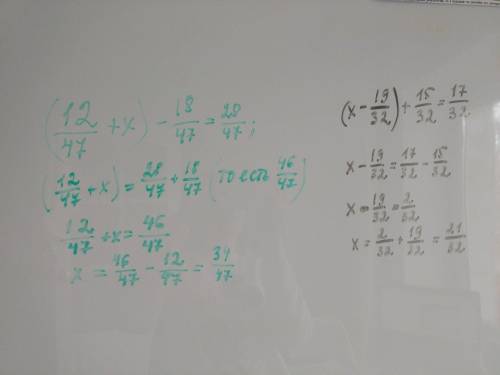 (12/47 + x) - 18/47 = 28/47;
(12/47 + x) = 28/47 + 18/47 (то есть 46/47)
12/47 + x = 46/47
x = 46/47 - 12/47 = 34/47
(x - 19/32) + 15/32 = 17/32
x - 19/32 = 17/32 - 15/32
x - 19/32 = 2/32
x = 2/32 + 19/32 = 21/32